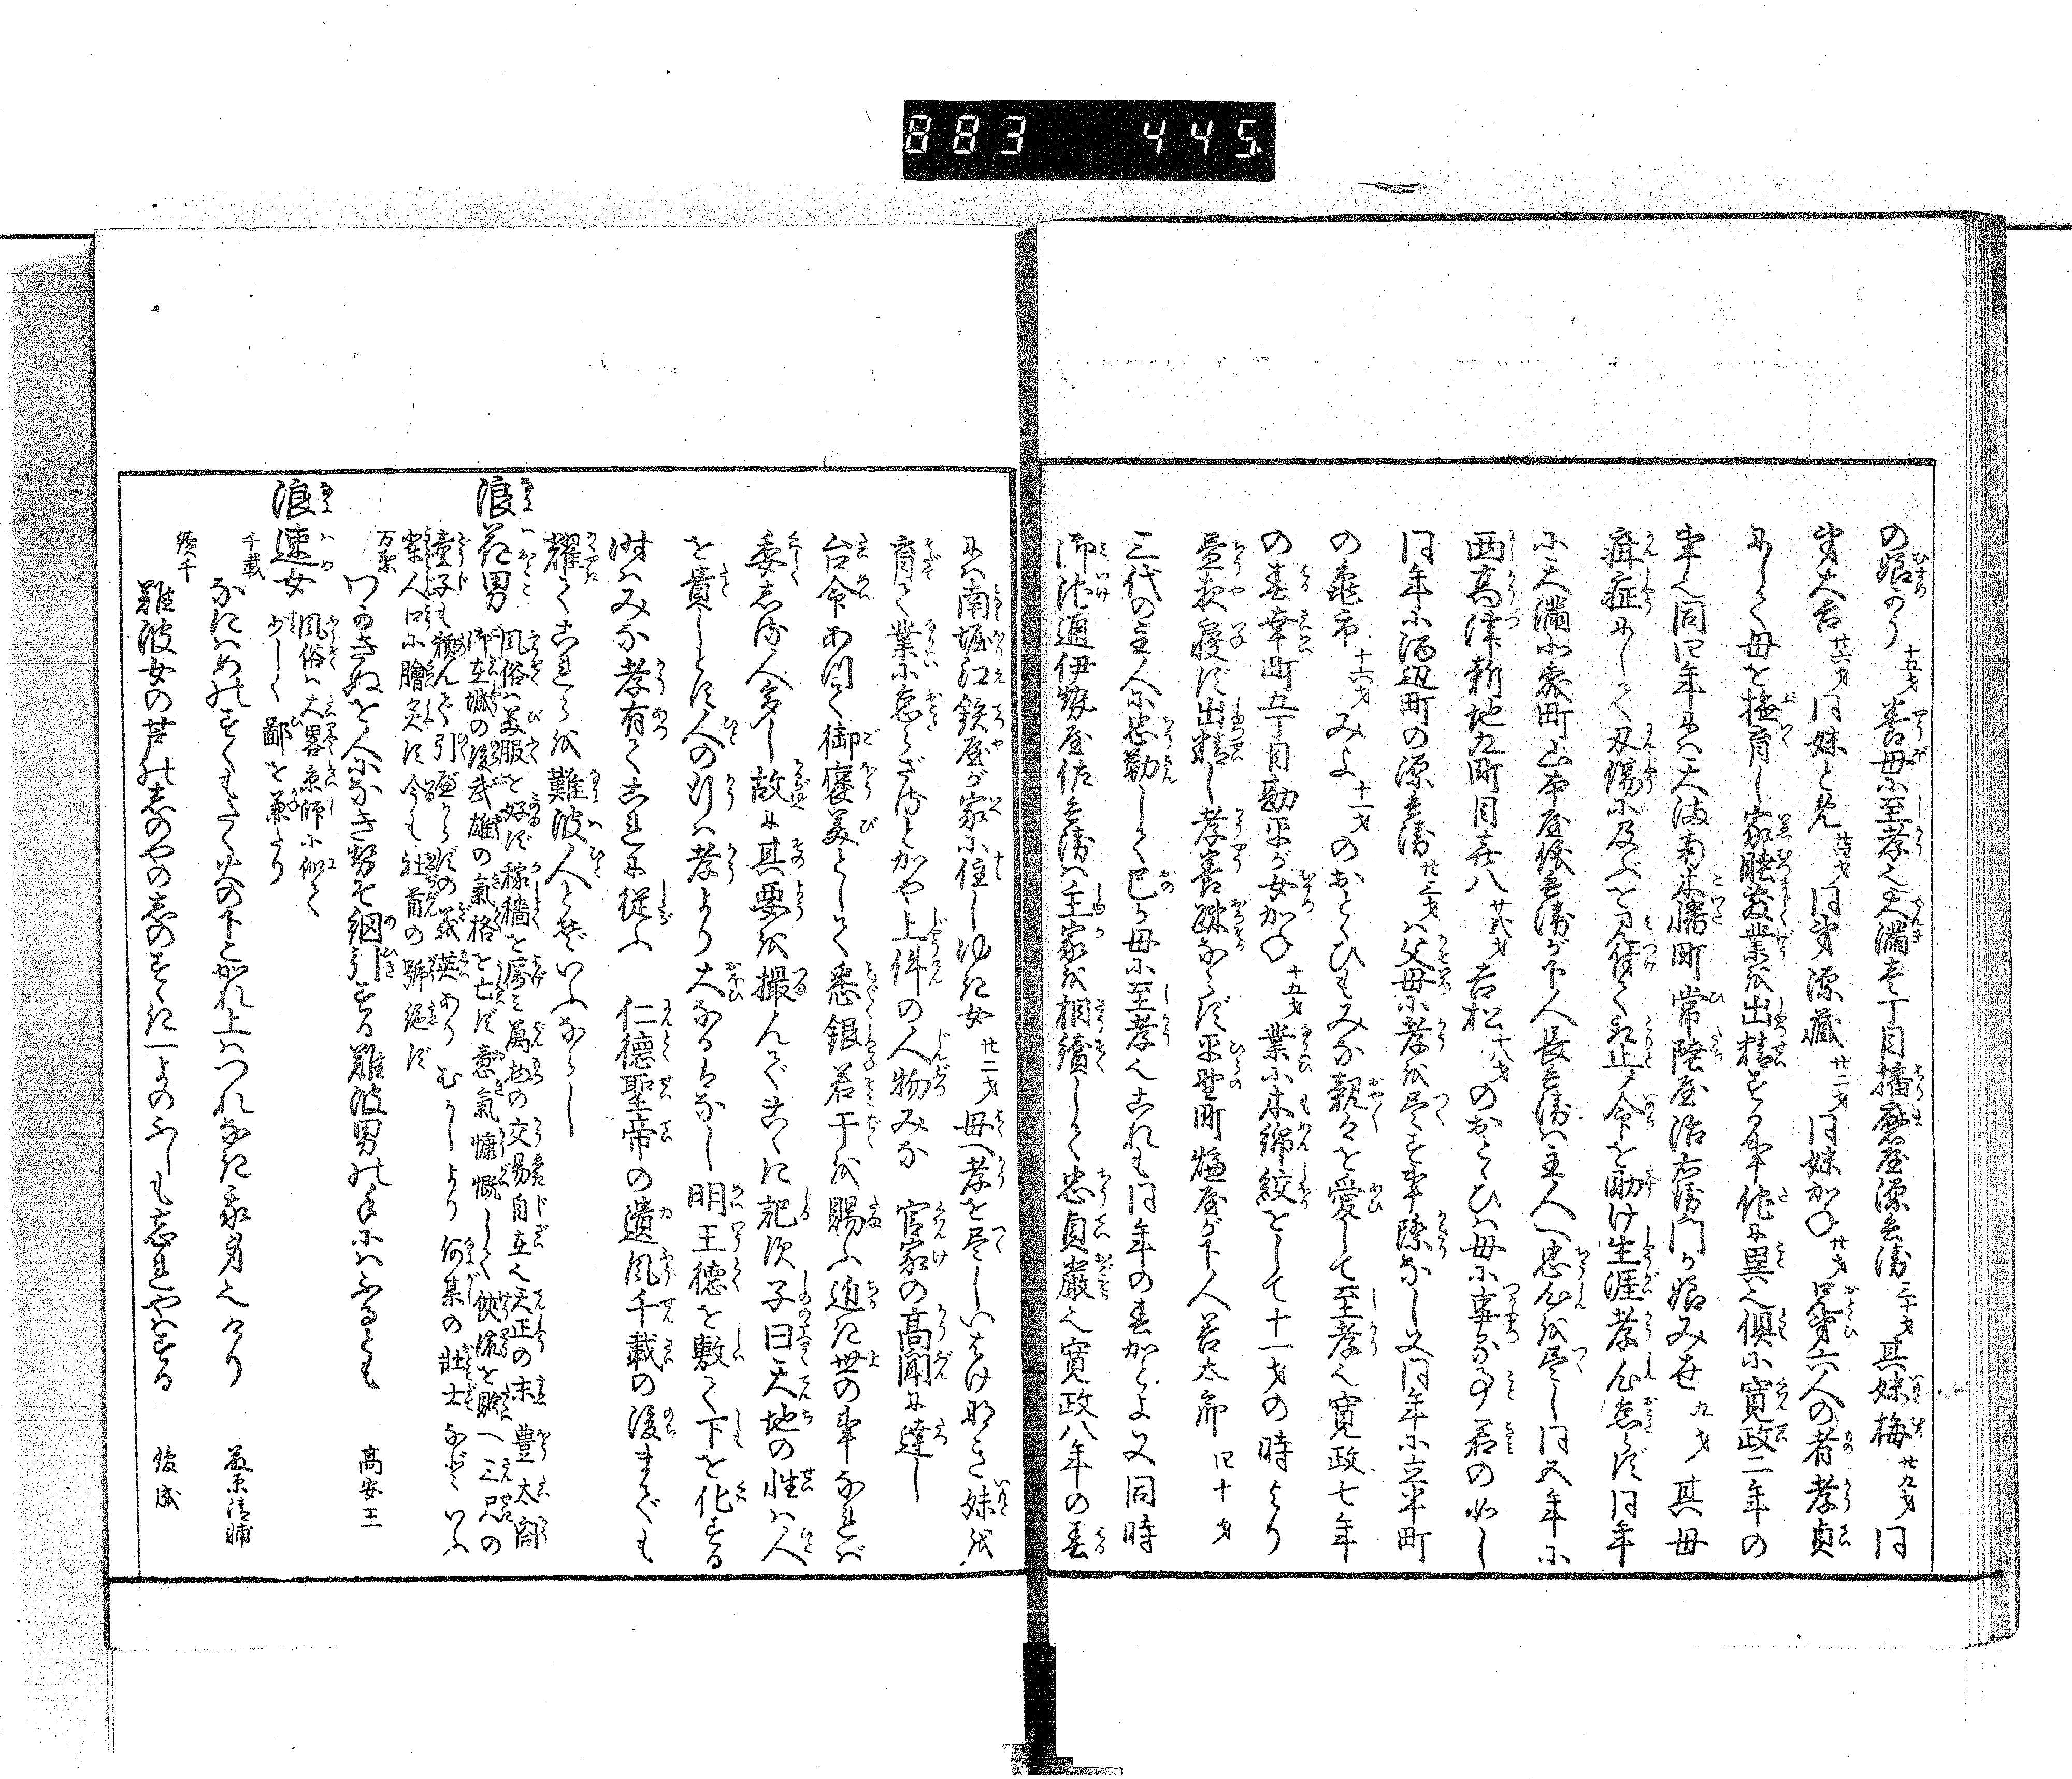 883 445
の娘こう十五才養母に至孝也天満壱丁目播磨屋源兵衛三十才其妹梅廿九才同
弟大吉廿六才同妹とめ廿四才同弟源蔵廿二才同妹かね廿才兄弟六人の者孝貞
にして母を撫育し家睦敷業を出精する事他に異也倶に寛政二年の
事也同四年には天満南木幡町常陸屋治右衛門が娘みせ九才其母
癇症にして刃傷に及ぶを見付て取止め命を助け生涯孝心怠らず同年
に天満小嶋町山本屋儀兵衛が下人長兵衛は主人へ忠心を尽し同五年に
西高津新地九町目喜八廿弐才吉松十八才のおとゝひは母に事る事君の如し
同年に酒辺町の源兵衛廿三才は父母に孝を尽す事際なし又同年に立半町
の亀市十六才みよ十一才のおとゝひもみな親々を愛して至孝也寛政七年
の春幸町五丁目勘平が女かね十五才業に木綿絞をして十一才の時より
昼夜寝ず出精し孝養疎ならず平野町糀屋が下人岩太郎四十才
三代の主人に忠勤して己が母に至孝也これも同年の春かとよ又同時
御池通伊勢屋佐兵衛は主家を相続して忠貞厳也寛政八年の春
には南堀江鉄屋が家に住しゆき女廿二才母へ孝を尽しいとけなき妹を
育て業に怠らざるとかや上件の人物みな官家の高聞に達し
台命あつて御褒美として悉銀若干を賜ふ近き世の事なれば
委しき人多し故に其要を撮んでこゝに記す子曰天地の性は人
を貴しとす人の行は孝より大なるはなし明王徳を敷て下を化する
時はみな孝有てこれに従ふ 仁徳聖帝の遺風千載の後までも
耀てこれらを難波人とぞいふならし
浪花男 風俗は美服を好ず稼穡を励み萬物の交易自在也天正の末豊太閤
御在城の後武雄の気格を亡ず意気慷慨して侠流を貯へ三尺の
童子も頼んで引ともからずの義英ありむかしより何某の壮士などゝいふ
輩人口に膾炙す今も社前の號絶ず
万葉 つるきぬを人になきせそ網引する難波男の手にはふるとも 高安王
浪速女 風俗は大畧京師に似て
少しく鄙を兼たり
千載 なにはめのすくもたく火の下こがれ上はつれなき我身也けり 藤原清輔
続千 難波女の芦のしのやのしのすゝき一よのふしも忘れやはする 俊成